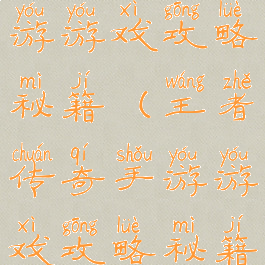 yóu yóu xì gōng lüè
游游戏攻略
mì jí wáng zhě
秘籍（王者
chuán qí shǒu yóu yóu
传奇手游游
xì gōng lüè mì jí
戏攻略秘籍